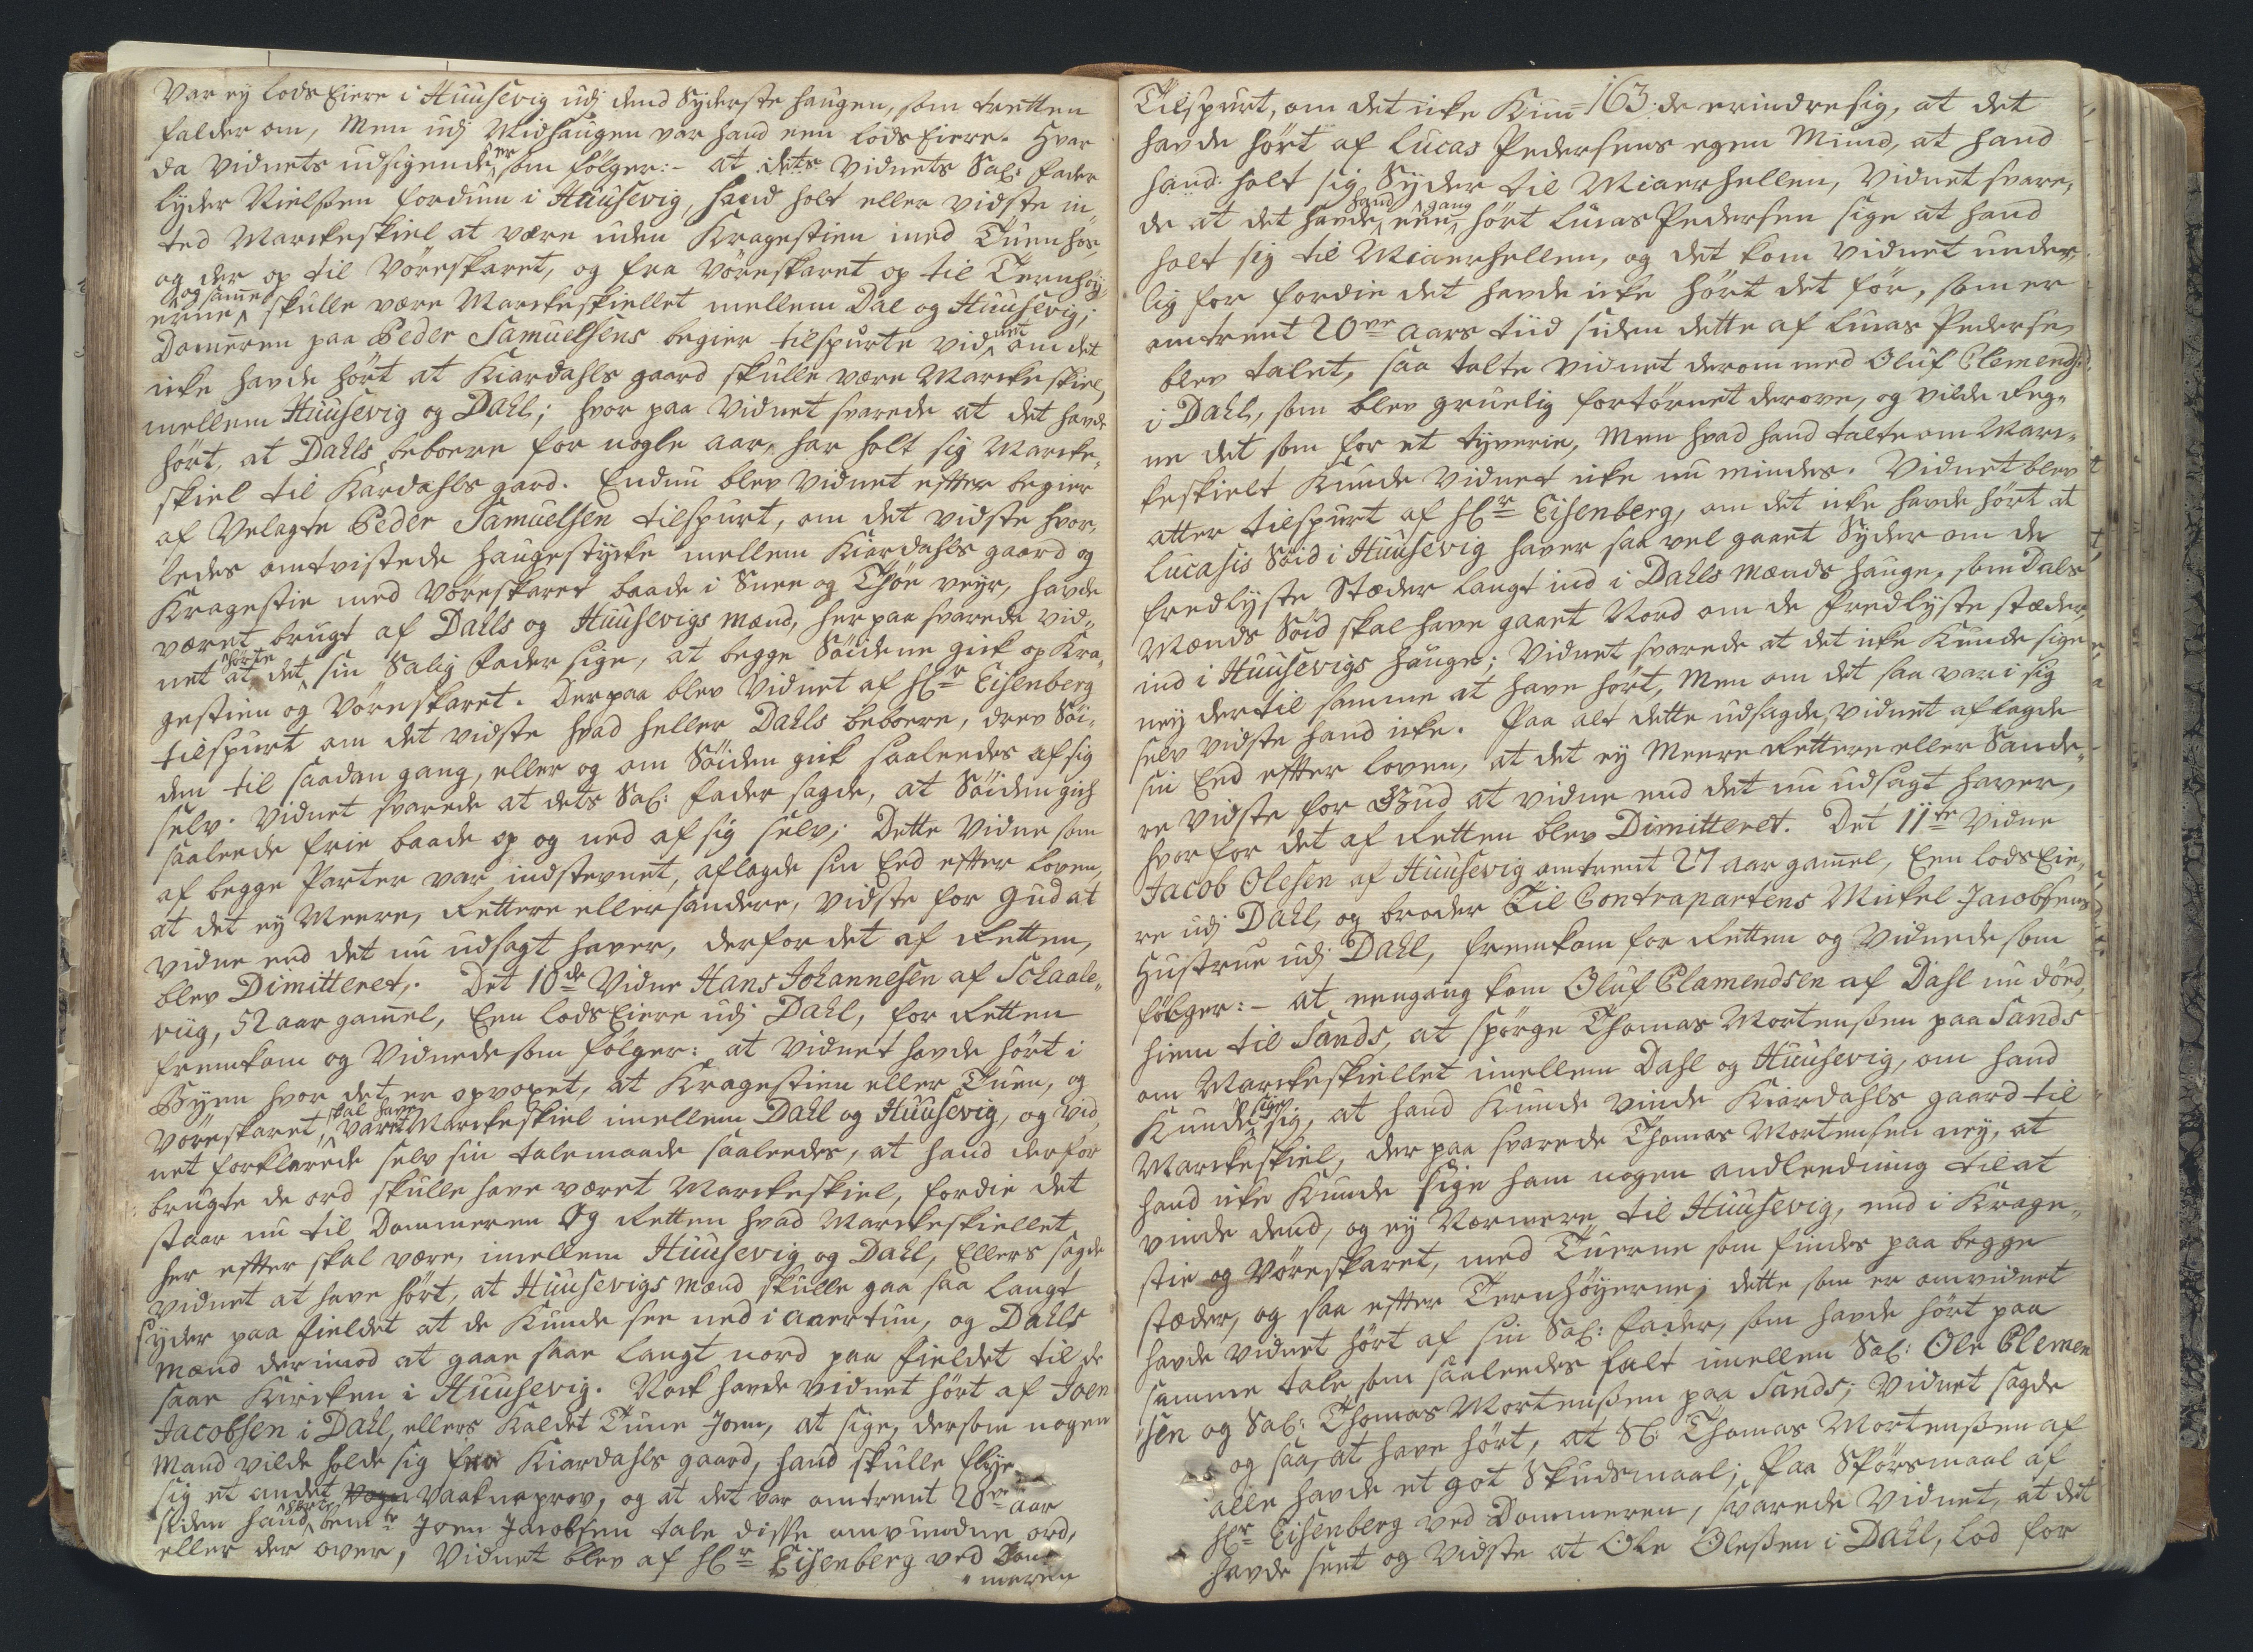 Var ej lods Eiere i Huusevig udj dend Syderste haugen, som trætten
falder om, Men udj Midhaugen var hand een lods Eiere. Hvar
da Vidnets udsigende er som følger:- at dets Vidnets Sal: fader
lyder Nielssen fordum i Huusevig, hand holt eller vidste in„
ted Marckeskiel at være uden Kragestien med Tuen hos,
og der op til Vöreskaret, og fra Vöreskaret op til Ternhöy„
erne, og samme skulle være Marckeskiellet mellem Dal og Huusevig;
Dommeren paa Peder Samuelsens begier tilspurte vidnet om det
icke havde hört at Kiardahls gaard skulle være Marckeskiel,
mellem Huusevig og Dahl; hvor paa Vidnet svarede at det havde
hört, at Dahls beboere for nogle aar, har holt sig Marcke„
skiel til Kardahls gard. Endnu blev Vidnet efter begier
af Velagte Peder Samuelsen tilspurt, om det vidste hvor„
ledes omtvistede haugestycke mellem Kiardahls gaard og
Kragestie med Vöreskaret baade i Snee og Thöe veyr, havde
været brugt af Dahls og Huusevigs Mænd, her paa svarede vid„
net at det hörte sin Salig Fader sige, at begge Söidene gick op Kra„
gestien og Vöreskaret. Derpaa blev Vidnet af Hr Eisenberg
tilspurt om det vidste hvad heller Dahls beboere, drev Söi„
den til saadan gang, eller og om Söiden gick saaleedes af sig
selv. Vidnet svarede at dets Sal: fader sagde, at Söiden gich
saaleede frie baade op og ned af sig selv; Dette Vidne som
af begge Parter var indstevnet, aflagde sin Eed efter loven,
at det ey Meere, Rettere eller sandere, vidste for Gud at
vidne end det nu udsagt haver, derfor det af Retten,
blev Dimitteret. Det 10de Vidne Hans Johannesen af Schaale„
viig, 52 aar gammel, Een lods Eiere udj Dahl, for Retten
fremkom og Vidnede som følger: at vidnet havde hört i
Byen hvor det er opvoxet, at Kragestien eller Tuen, og
Vöreskaret, skal have varet Marckeskiel imellem Dahl og Huusevig, og Vid„
net forklarede selv sin talemaade saaleedes, at hand derfor
brugte de ord skulle have været Marckeskiel, fordie det
staar nu til Dommeren Og Retten hvad Marckeskiellet
her efter skal være, imellem Huusevig og Dahl, Ellers sagde
vidnet at have hört, at Huusevigs Mænd skulle gaa saa langt
Syder paa fieldet at de Kunde see ned i Aaertun, og Dahls
Mænd derimod at gaae saae langt nord paa fieldet til de
saae Kircken i Huusevig. Nock havde vidnet hört af Joen
Jacobsen i Dahl, ellers Kaldet Tune Joen, at sige, dersom nogen
Mand vilde holde sig fra Kiardahls gaard, hand skulle flye
sig et andet Vaabneprov, og at det var omtrent 20ve aar
siden hand hörte bemte Joen Jacobsen tale disse omvundne ord,
eller der over, Vidnet blev af Hr Eisenberg ved Dom„
meren
163.
Tilspurt, om det icke Kun=de erindre sig, at det
havde hört af Lucas Pedersens egen Mund, at hand
hand holt sig Syder til Miaerhellen, Vidnet svare„
de at det havde hand een gang hört Lucas Pedersen sige at hand
holt sig til Miaerhellen, og det kom Vidnet under„
lig for fordie det havde icke hört det för, som er
omtrent 20ve aars tiid siden dette af Lucas Pedersen
blev talet, saa talte vidnet derom med Oluf Clemends:
i Dahl, som blev gruelig fortörnet derove, og vilde Reg„
ne det som for et tyverie, Men hvad hand talte om Marc„
keskielt Kunde Vidnet icke nu mindes. Vidnet blev
atter tilspurt af Hr Eisenberg, om det icke havde hört at
Lucasis Söid i Huusevig haver saa vel gaaet Syder om de
fredlyste Stæder langt ind i Dahls Mænds hauge, som Dals
Mænds Söid skal have gaaet Nord om de fredlyste stæder,
ind i Huusevigs hauge; Vidnet svarede at det icke Kunde sige
ney dertil samme at have hört, Men om det saa var i sig
selv vidste hand icke. Paa alt dette udsagde, vidnet aflagde
sin Eed efter loven, at det ey Meere Rettere eller Sande„
re vidste for Gud at vidne end det nu udsagt haver,
hvor for det af Retten blev Dimitteret. Det 11te Vidne
Jacob Olesen af Huusevig omtrent 27 aar gammel, Een lods Eie„
re udj Dahl, og broder til Contrapartens Mickel Jacobsens
Hustrue udj Dahl, fremkom for Retten og Vidnede som
følger:- at eengang kom Oluf Clamendsen af Dahl nu död,
hiem til Sands, at spörge Thomas Mortenssen paa Sands
om Marckeskiellet imellem Dahl og Huusevig, om hand
Kunde sige sig, at hand Kunde vinde Kiardahls gaard til
Marckeskiel, der paa svarede Thomas Mortensen ney, at
hand icke Kunde sige ham nogen andleedning til at
vinde dend, og ey Nærmere til Huusevig, end i Krage„
stie og Vöreskaret, med Tuerne som findes paa begge
stæder, og saa efter Ternhöyerne; dette som er omvidnet
havde vidnet hört af sin Sal: fader, som havde hört paa
samme tale, som saaleedes falt imellem Sal: Ole Clemen
sen og Sal: Thomas Mortenssen paa Sands; Vidnet sagde
og saa, at have hört, at Sl: Thomas Mortenssen af
alle havde et got Skudsmaal; Paa Spörsmaal af
Hr Eisenberg ved Dommeren, svarede Vidnet, at det
havde seet og vidste at Ole Olessen i Dahl, lod for